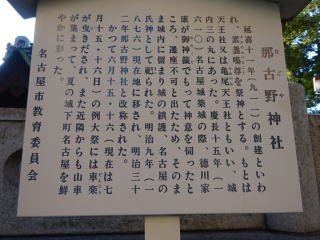 なごや
那古野神社
延喜十一年(九一一)の創建といわ
れ、素盞嗚尊を祭神とする。もとは
天王社又は亀尾天王社ともいい、城
内三の丸にあった。慶長十五年(一
六一〇)名古屋城築城の際、徳川家
康が御神籤でもって神意を伺ったと
ころ、遷座不可と出たため、そのま
ま城内に留まり城の鎮護、名古屋の
氏神として祀られた。明治九年(一
八七六)現在地に移され、明治三十
二年那古野神社と改称された。
かつて六月十五・十六(現在は七
月十五・十六日)の例大祭には車楽
が曳きだされ、また近隣からも山車
が集まって、夏の城下町名古屋を鮮
やかに彩った。
名古屋市教育委員会